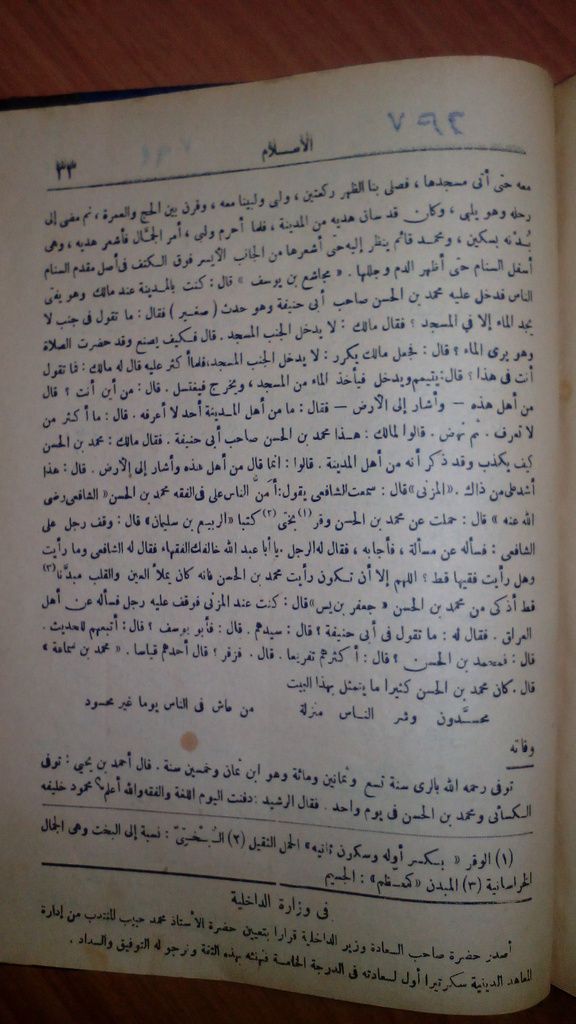 الأسلام
٣٣
معه حتى أتى مسجدها ، فصلى بنا الظهر ركعتين ، ولبى ولبينا معه ، وقرن بين الحج والعمرة ، ثم مضى إلى
رحله وهو يلبى ، وكان قد ساق هديه من المدينة ، فلما أحرم ولبى ، أمر الجمّال فأشعر هديه ، وهى
بُدْنه بسكين ، ومحمد قائم ينظر إليه حتى أشعرها من الجانب الأيسر فوق الكتف فى أصل مقدم السنام
أسفل السنام حتى أظهر الدم وجللها . « مجاشع بن يوسف » قال : كنت بالمدينة عند مالك وهو يفتى
الناس فدخل عليه محمد بن الحسن صاحب أبى حنيفة وهو حدث ( صغير ) فقال : ما تقول فى جنب لا
يجد الماء إلا فى المسجد ؟ فقال مالك : لا يدخل الجنب المسجد . قال فكيف يصنع وقد حضرت الصلاة
وهو يرى الماء ؟ قال : فجعل مالك يكرر : لا يدخل الجنب المسجد ، فلما أكثر عليه قال له مالك : فما تقول
أنت فى هذا ؟ قال : يتيمم ويدخل فيأخذ الماء من المسجد ، ويخرج فيغتسل . قال : من أين أنت ؟ قال
من أهل هذه — وأشار إلى الأرض — فقال : ما من أهل المدينة أحد لا أعرفه . قال : ما أكثر من
لا تعرف . ثم نهض . قالوا لمالك : هذا محمد بن الحسن صاحب أبى حنيفة . فقال مالك : محمد بن الحسن
كيف يكذب وقد ذكر أنه من أهل المدينة . قالوا : انما قال من أهل هذه وأشار إلى الأرض . قال : هذا
أشد على من ذاك . « المزنى » قال : سمعت الشافعى يقول : أمَنُّ الناس على فى الفقه محمد بن الحسن « الشافعى رضى
الله عنه » قال : حملت عن محمد بن الحسن وقر (١) بختى (٢) كتبا « الربيع بن سليمان » قال : وقف رجل على
الشافعى : فسأله عن مسألة ، فأجابه ، فقال له الرجل . يا أبا عبد الله خالفك الفقهاء فقال له الشافعى وما رأيت
وهل رأيت فقيها قط ؟ اللهم إلا أن تكون رأيت محمد بن الحسن فانه كان يملأ العين والقلب مبدَّنا (٣)
قط أذكى من محمد بن الحسن « جعفر بن يس » قال : كنت عند المزنى فوقف عليه رجل فسأله عن أهل
العراق . فقال له : ما تقول فى أبى حنيفة ؟ قال : سيدهم . قال : فأبو يوسف ؟ قال : أتبعهم للحديث .
قال : فمحمد بن الحسن ؟ قال : أكثرهم تفريعا . قال . فزفر ؟ قال أحدهم قياسا . « محمد بن سماعة »
قال . كان محمد بن الحسن كثيرا ما يتمثل بهذا البيت
محسدون وشر الناس منزلة من عاش فى الناس يوما غير محسود
وفاته
توفى رحمه الله بالرى سنة تسع وثمانين ومائة وهو ابن ثمان وخمسين سنة . قال أحمد بن يحيى : توفى
الكسائى ومحمد بن الحسن فى يوم واحد . فقال الرشيد : دفنت اليوم اللغة والفقه والله أعلم ؟ محمود خليفه
(١) الوقر « بكسر أوله وسكون ثانيه » الحمل الثقيل (٢) البُخْتىّ : نسبة إلى البخت وهى الجمال
الخراسانية (٣) المبدن « كمعظم » : الجسيم
فى وزارة الداخلية
أصدر حضرة صاحب السعادة وزير الداخلية قرارا بتعيين حضرة الأستاذ محمد حبيب المنتدب من إدارة
المعاهد الدينية سكرتيرا أول لسعادته فى الدرجة الخامسة فنهنئه بهذه الثقة ونرجو له التوفيق والسداد .